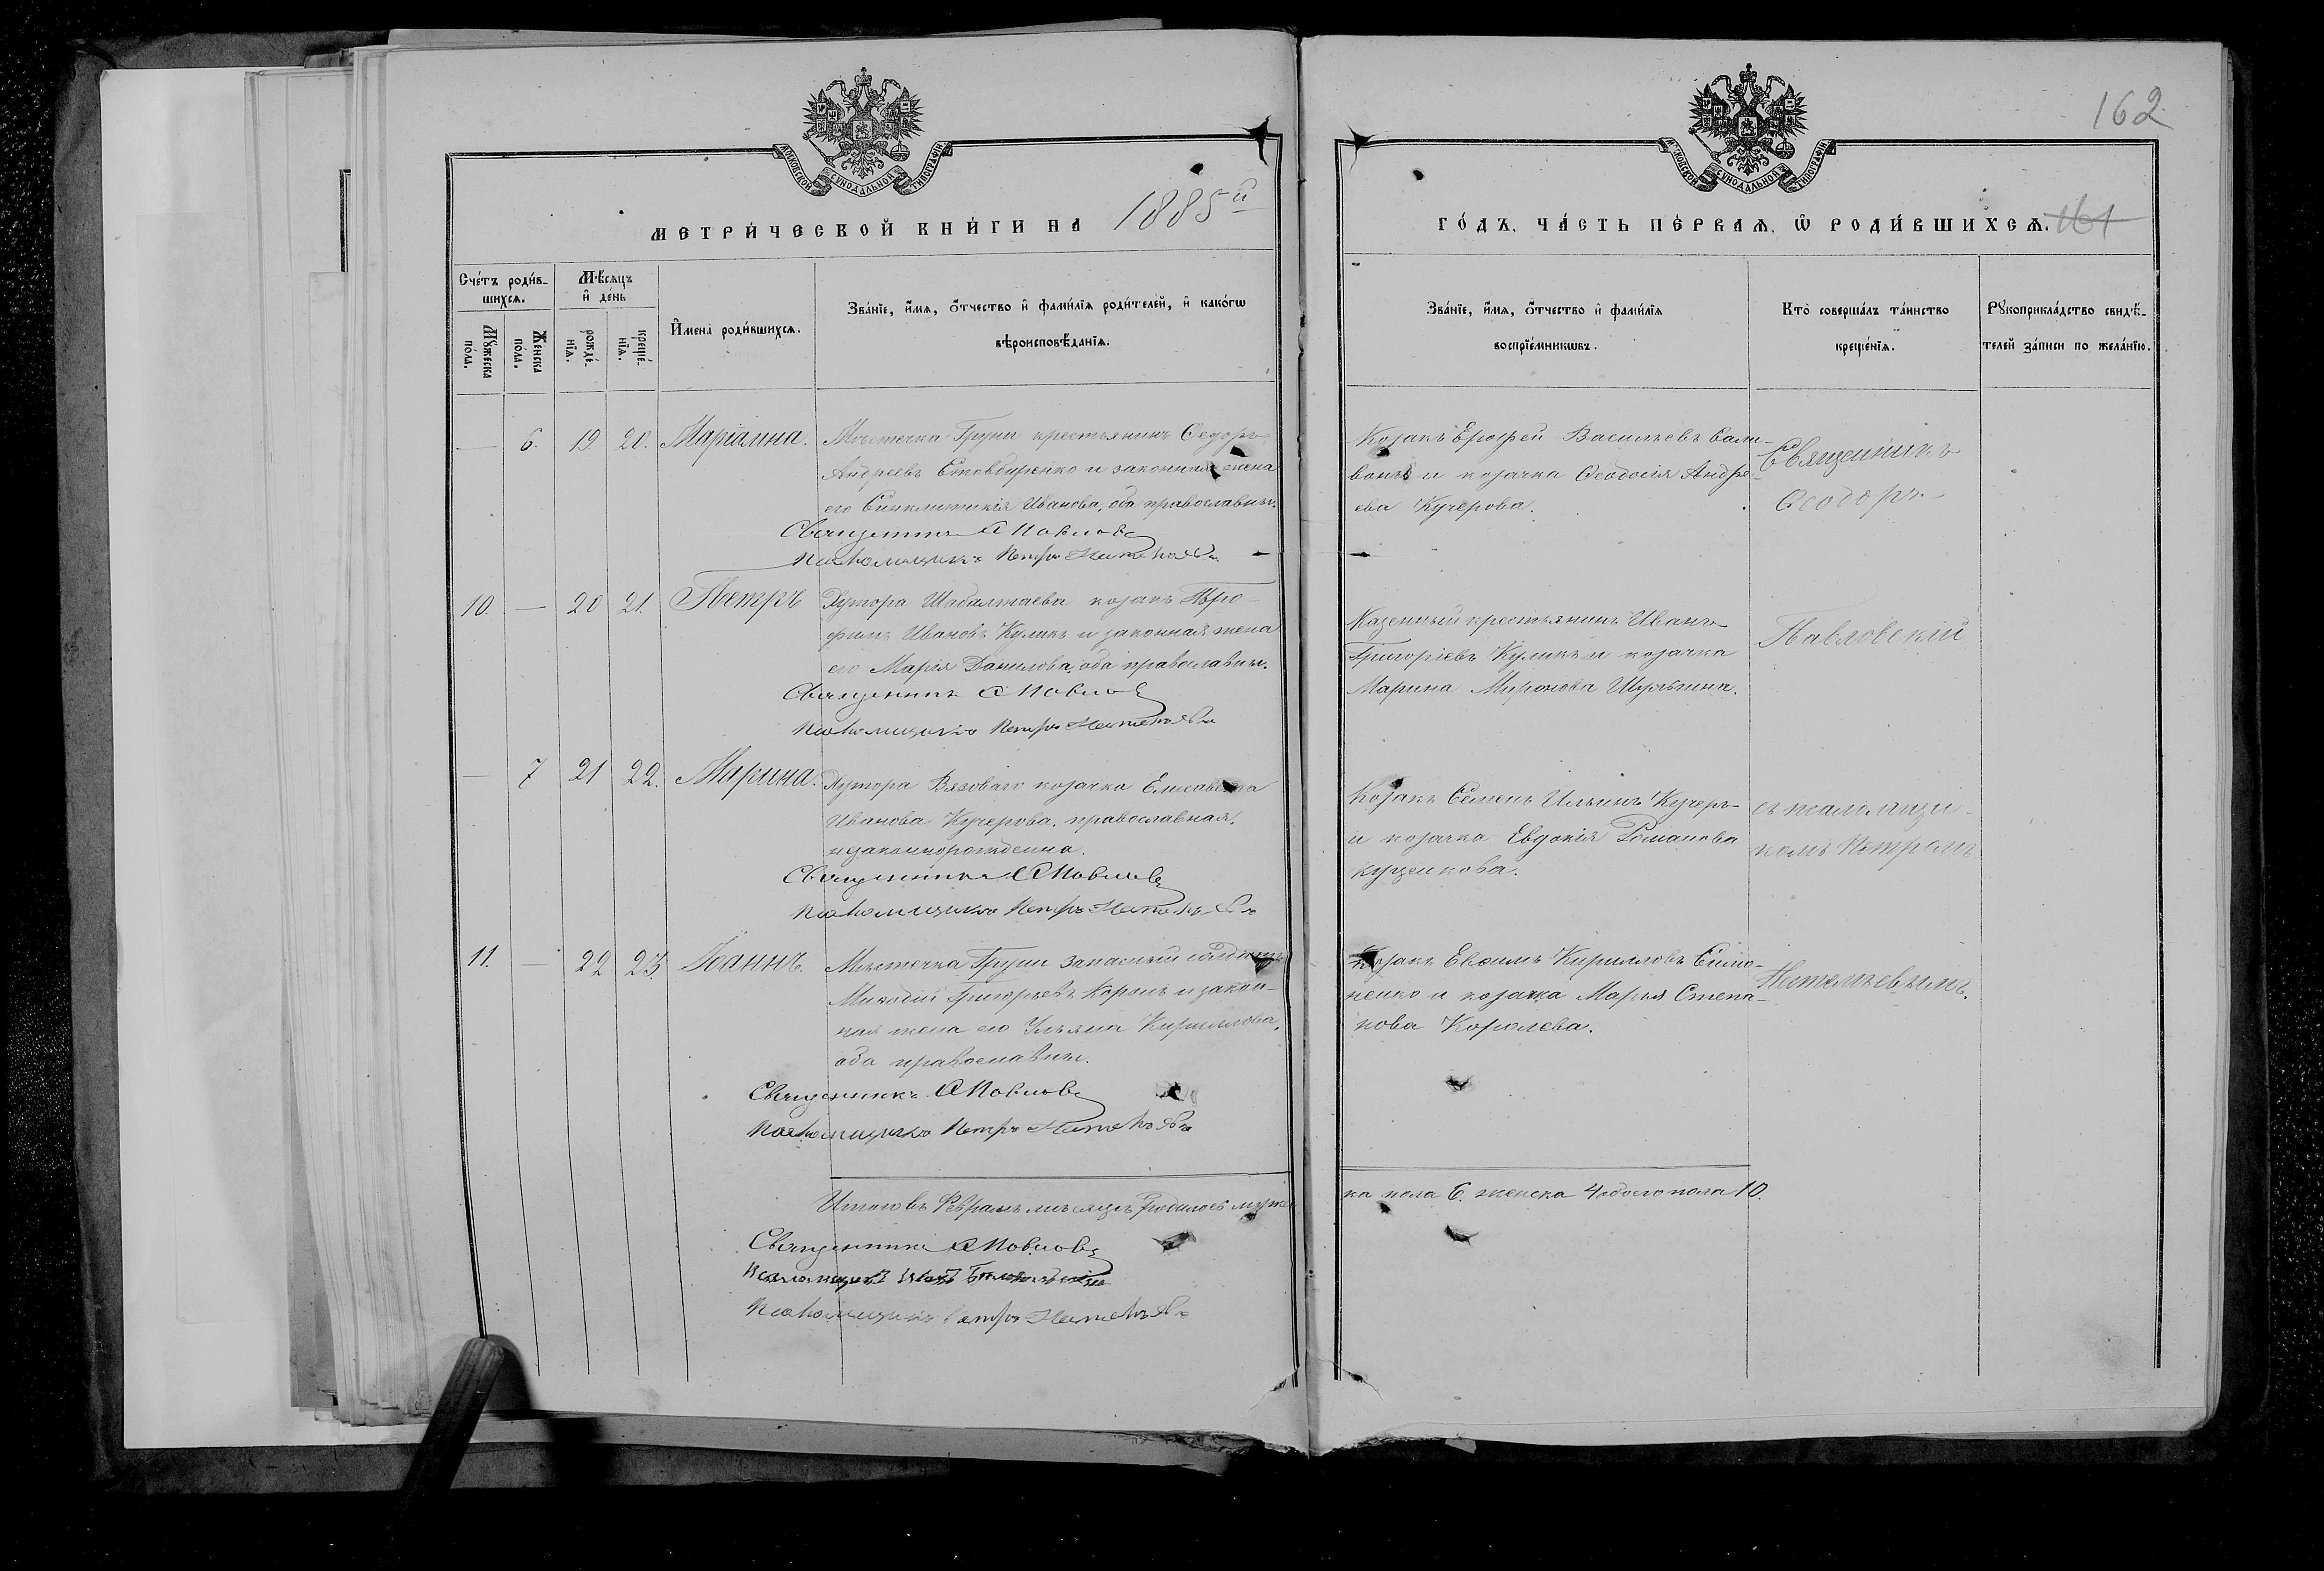 162
МОСКОВСКОЙ СУНОДАЛЬНОЙ ТИПОГРАФІИ
МОСКОВСКОЙ СУНОДАЛЬНОЙ ТИПОГРАФІИ
МЕТРИ́ЧЕСКОЙ КНИ́ГИ НА 1885й
ГО́ДЪ, ЧА́СТЬ ПЕ́РВАѦ, Ѡ РОДИ́ВШИХСѦ. 161
Сче́тъ роди́в-
шихсѧ.
Мꙋжеска по́ла.
Же́нска по́ла.
Мѣ́сѧцъ
и҆ де́нь
рожде́-
нїѧ.
креще́-
нїѧ.
И҆мена̀ роди́вшихсѧ.
Зва́нїе, и҆́мѧ, ѻ҆́тчество и҆ фами́лїѧ роди́телей, и҆ како́гѡ
вѣроисповѣ́данїѧ.
Зва́нїе, и҆́мѧ, ѻ҆́тчество и҆ фами́лїѧ
воспрїе́мникѡвъ.
Кто̀ соверша́лъ та́инство
креще́нїѧ.
Рꙋкоприкла́дство свидѣ́-
телей за́писи по жела́нїю.
— 6. 19. 20. Маріанна.
Мѣстечка Груни крестьянинъ Ѳедоръ
Андреевъ и законная жена
его Синклитикія Иванова, оба православны.
Священникъ Ѳ Павловс
Псаломщикъ Петръ
Козакъ Ерофей Васильевъ Сали-
вонъ и козачка Ѳеодосія Андре-
ева Кучерова.
Священникъ
Ѳеодоръ
10. — 20 21. Петръ
Хутора козакъ Тро-
фимъ Ивановъ Куликъ и законная жена
его Марія Данилова, оба православны.
Священникъ Ѳ Павлов
Псаломщикъ Петръ
Казенный крестьянинъ Иванъ
Григоріевъ Куликъ и козачка
Марина Миронова
Павловскій
— 7 21 22. Марина.
Хутора Вязоваго козачка Елисавета
Иванова Кучерова, православная,
незаконнорожденна.
Священникъ Ѳ Павловс
Псаломщикъ Петръ
Козакъ Семенъ Ильинъ Кучеръ
и козачка Евдокія Романова
Куценкова.
съ псаломщи-
комъ Петромъ
11. — 22 23 Іоаннъ.
Мѣстечка Груни запасный
Меѳодій Григорьевъ Король и закон-
ная жена его Ульяна Кириллова,
оба православны.
Священникъ Ѳ Павловс
Псаломщикъ Петръ
Козакъ Евѳимъ Кирилловъ Симо-
ненко и козачка Марья Степа-
нова Королева.
Итого въ Февралѣ мѣсяцѣ родилось мужес
ка пола 6. женска 4 обоего пола 10.
Священникъ Ѳ Павловс
Псаломщикъ
Псаломщикъ Петръ